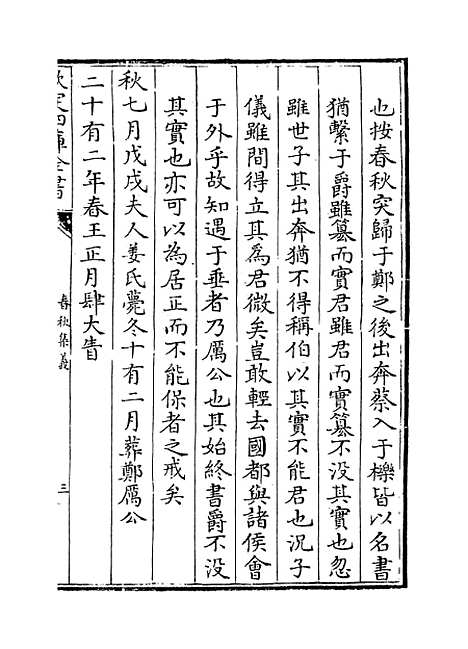 也按春秋突歸于鄭之後出奔蔡入于櫟皆以名書
猶繫于爵雖篡而實君雖君而實篡不没其實也忽
雖世子其出奔猶不得稱伯以其實不能君也況子
儀雖間得立其爲君微矣豈敢輕去國都與諸侯會
于外乎故知遇于垂者乃厲公也其始終書爵不没
其實也亦可以為居正而不能保者之戒矣
秋七月戊戌夫人姜氏薨冬十有二月葬鄭厲公
二十有二年春王正月肆大眚
欽定四庫全書
春秋集義
三